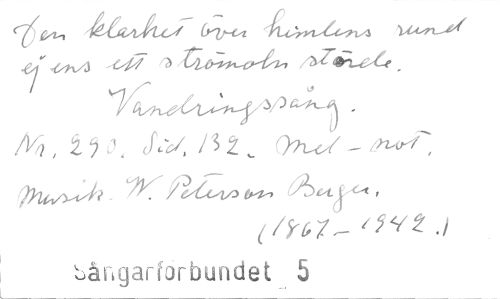 Den klarhet över himlens rund
ej ens ett strömoln störde.
Vandringssång.
Nr. 290. Sid. 132. Mel-not.
Musik. W. Peterson Berger.
(1867-1942.)
Sångarförbundet 5